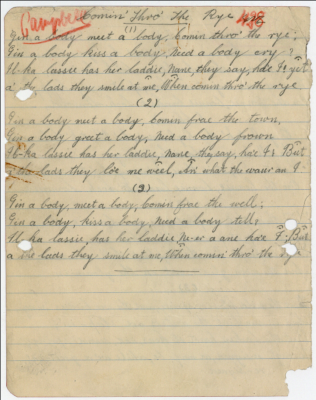 Campbell
Comin' Thro' The Rye
(1)
Gin a body meet a body Comin thro' the rye;
Gin a body kiss a body Need a body cry?
Il-ka lassie has her laddie, Nane, they say, ha'e I; yet
a' the lads they smile at me, When comin' thro' the rye
(2)
Gin a body meet a body, Comin frae the town,
Gin a body greet a body, Need a body frown
Il-ka lassie has her laddie, Nane, they say, ha'e I; But
a' the lads they lo'e me weel, An' what the waur am I
(3)
Gin a body, meet a body, Comin frae the well;
Gin a body, kiss a body, Need a body tell;
Il-ka lassie, has her laddie, Ne-er a ane ha'e I; But
a' the lads they smile at me, When comin' thro' the rye